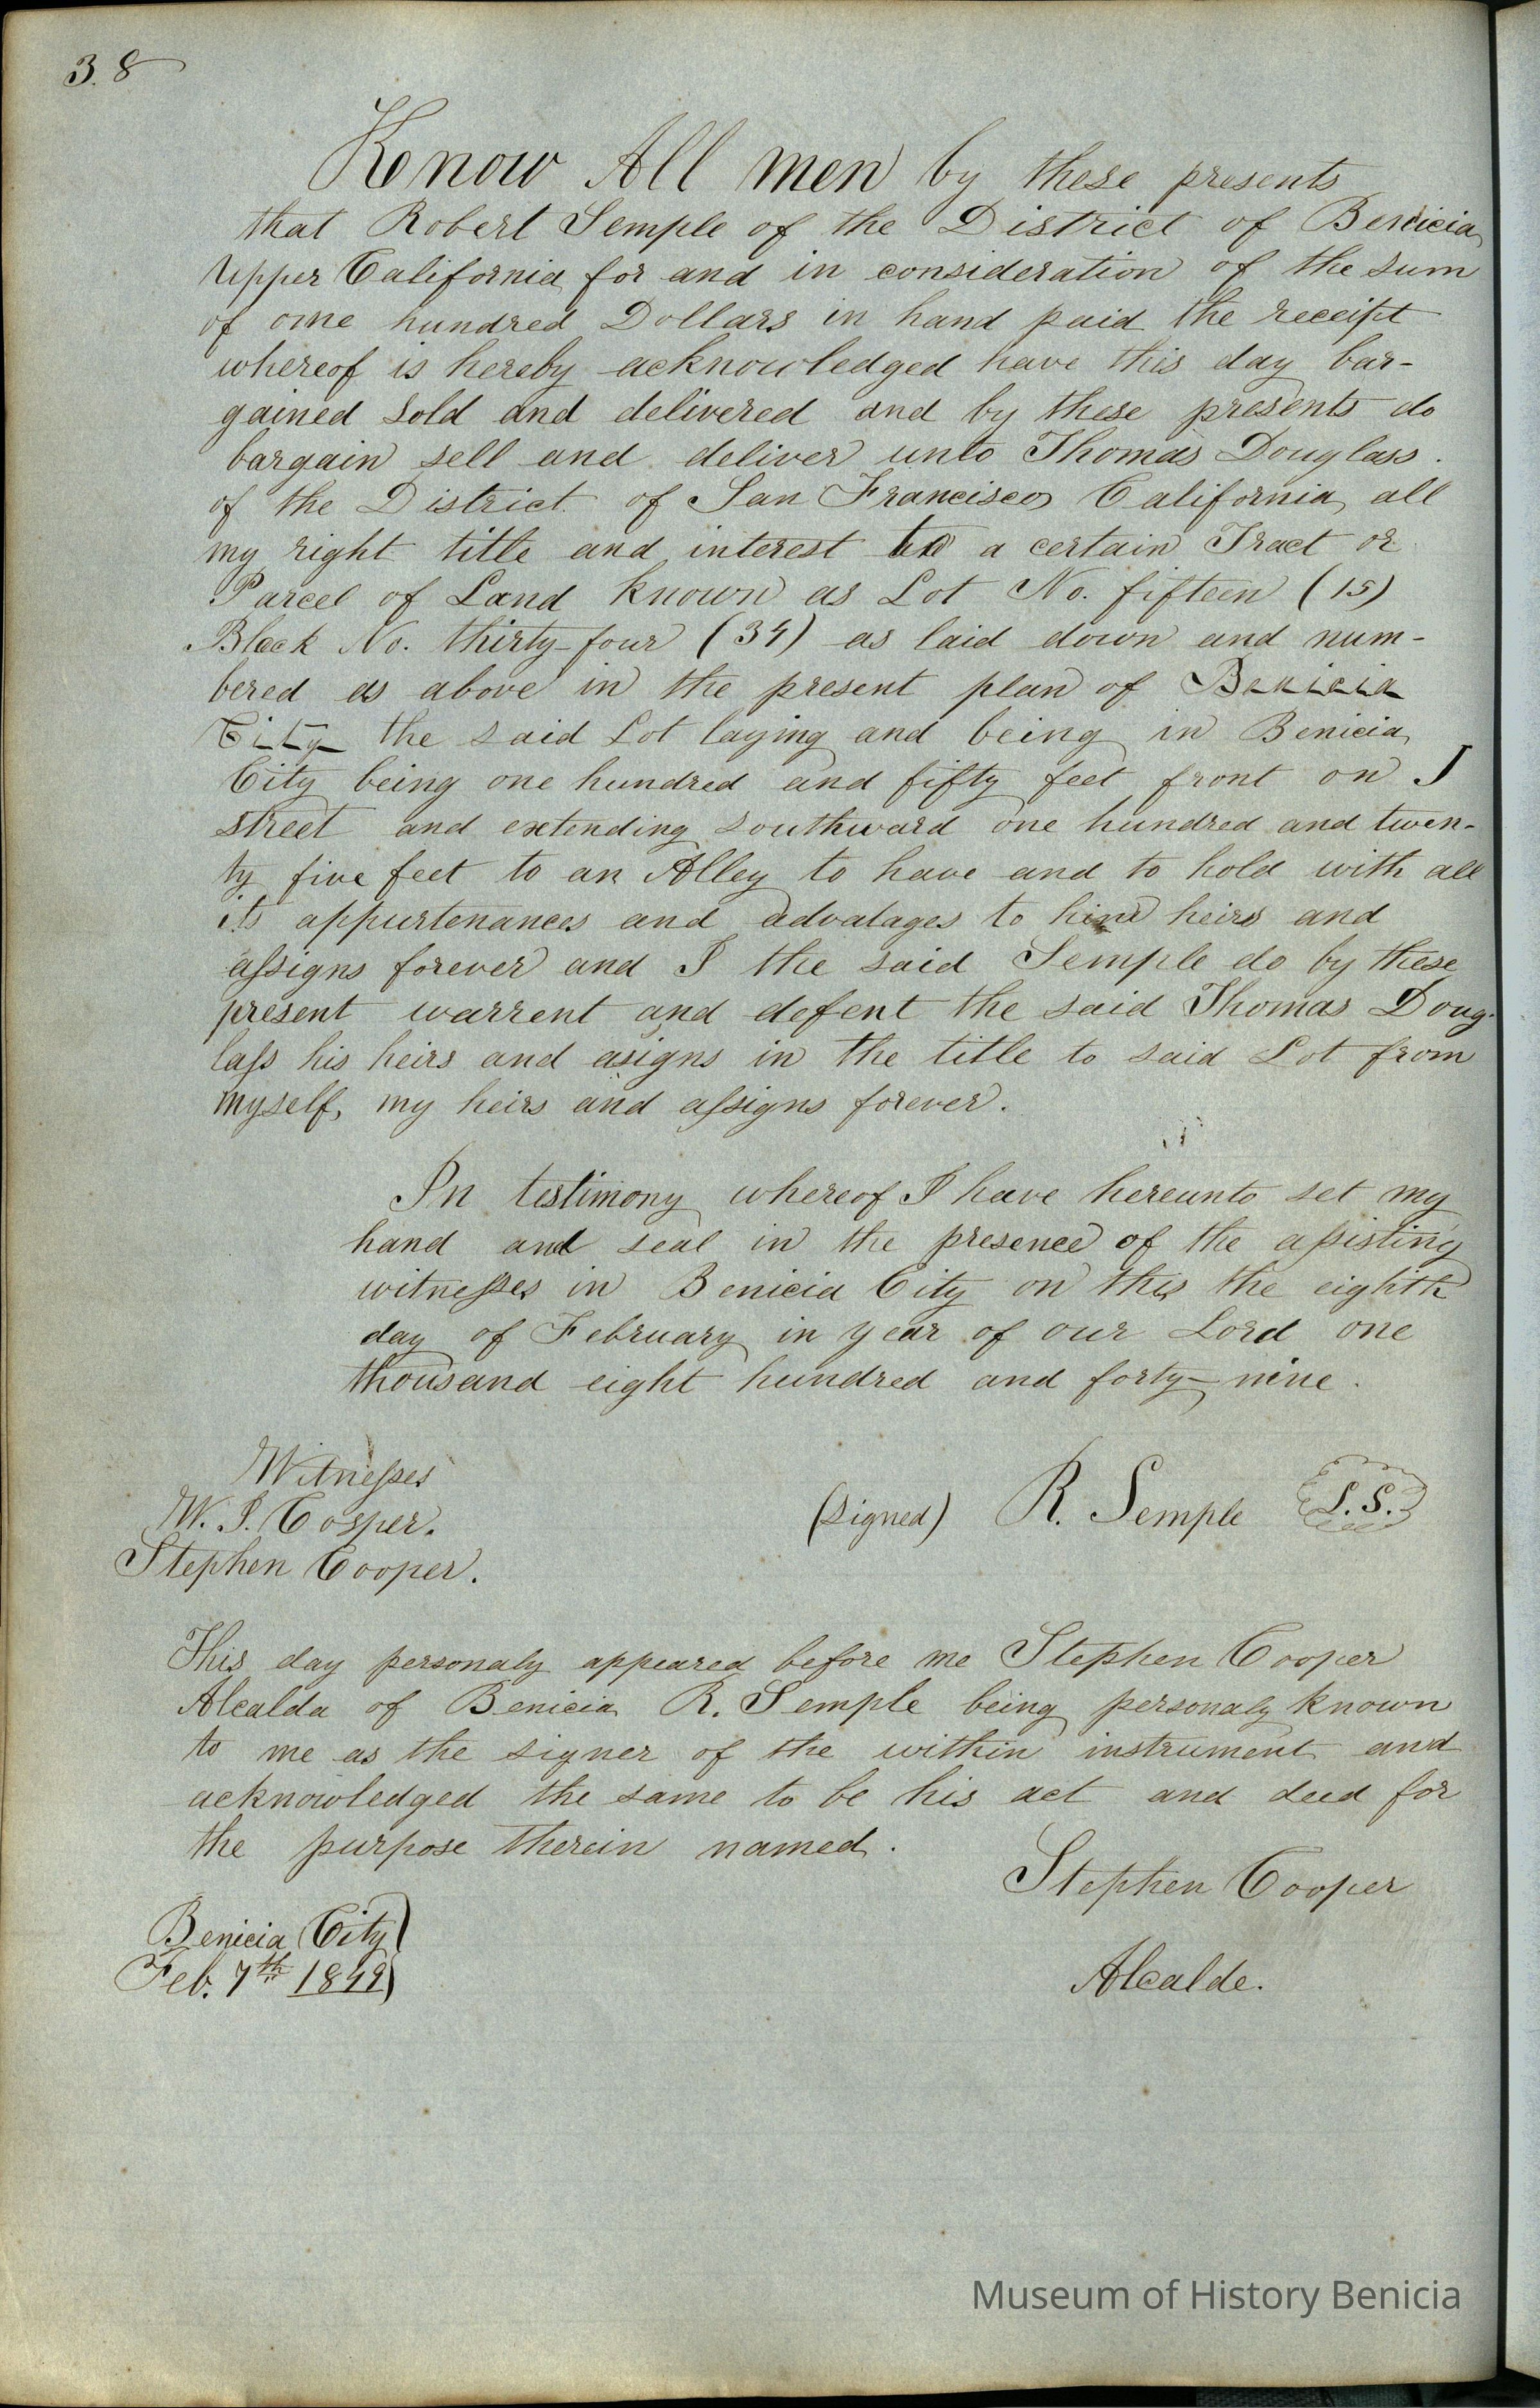 38
Know All men by these presents
that Robert Semple of the District of Benicia
Upper California for and in consideration of the sum
of one hundred Dollars in hand paid the receipt
whereof is hereby acknowledged have this day bar-
gained sold and delivered and by these presents do
bargain sell and deliver unto Thomas Douglass.
of the District of San Francisco California all
my right title and interest to a certain Tract or
Parcel of Land known as Lot No. fifteen (15)
Block No. thirty-four (34) as laid down and num-
bered as above in the present plan of Benicia
City the said Lot laying and being in Benicia
City being one hundred and fifty feet front on J
street and extending southward one hundred and twen-
ty five feet to an Alley to have and to hold with all
its appurtenances and advatages to him heirs and
assigns forever and I the said Semple do by these
present warrent and defent the said Thomas Doug-
lass his heirs and asigns in the title to said Lot from
myself, my heirs and assigns forever.
In testimony whereof I have hereunto set my
hand and seal in the presence of the assisting
witnesses in Benicia City on this the eighth
day of February in year of our Lord one
thousand eight hundred and forty-nine.
Witnesses
W. I. Cosper.
(signed) R. Semple L.S.
Stephen Cooper.
This day personaly appeared before me Stephen Cooper
Alcalda of Benicia R. Semple being personaly known
to me as the signer of the within instrument and
acknowledged the same to be his act and deed for
the purpose therein named.
Stephen Cooper
Benicia City
Feb. 7th 1849
Alcalde.
Museum of History Benicia